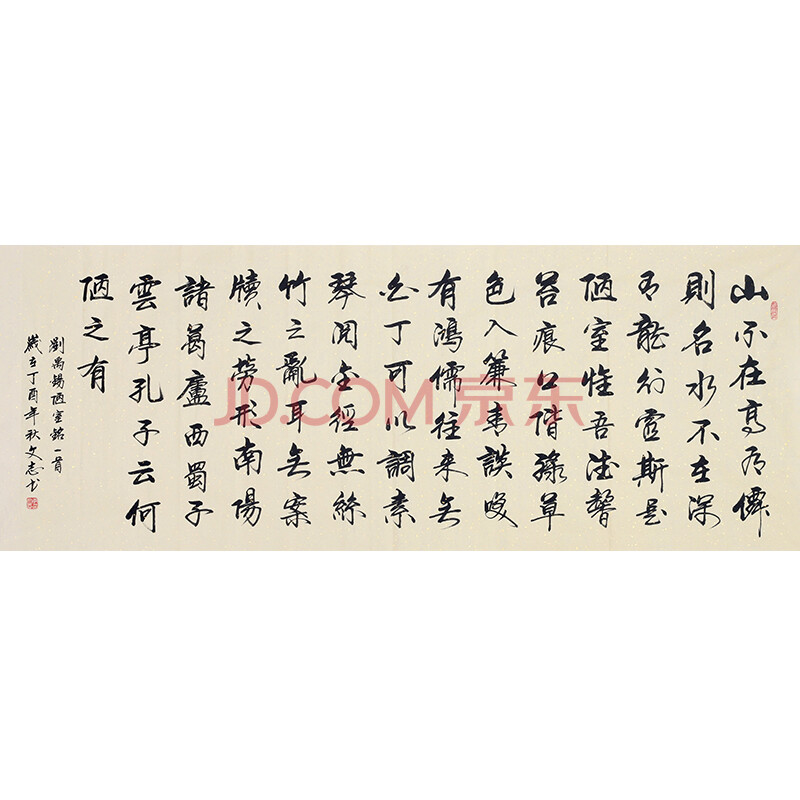 山不在高有僊
則名水不在深
有龍則靈斯是
陋室惟吾德馨
苔痕上階綠草
色入簾青談笑
有鴻儒往來無
白丁可以調素
琴閱金經無絲
竹之亂耳無案
牘之勞形南陽
諸葛廬西蜀子
雲亭孔子云何
陋之有
劉禹錫陋室銘一首
歲在丁酉年秋文志书
JD.COM 京东